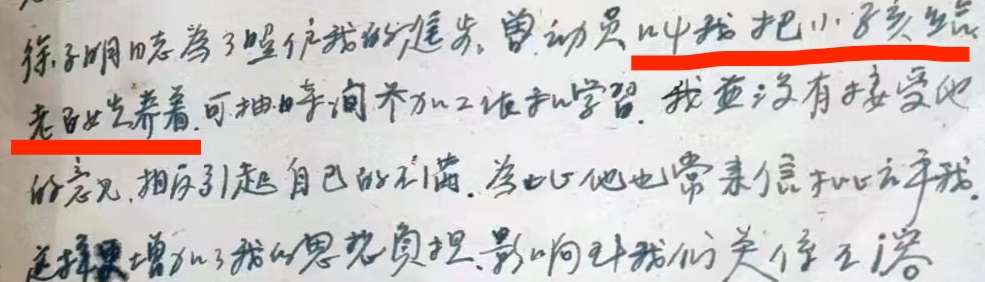 徐子明同志為了照护我的進步。曾动员叫我把小孩给
老百姓先养着.可抽時间参加工作和学習.我並没有接受他
的意见.相反引起自己的不满.為此他也常来信批评我.
这样更增加了我的思想负担.影响到我们关係不